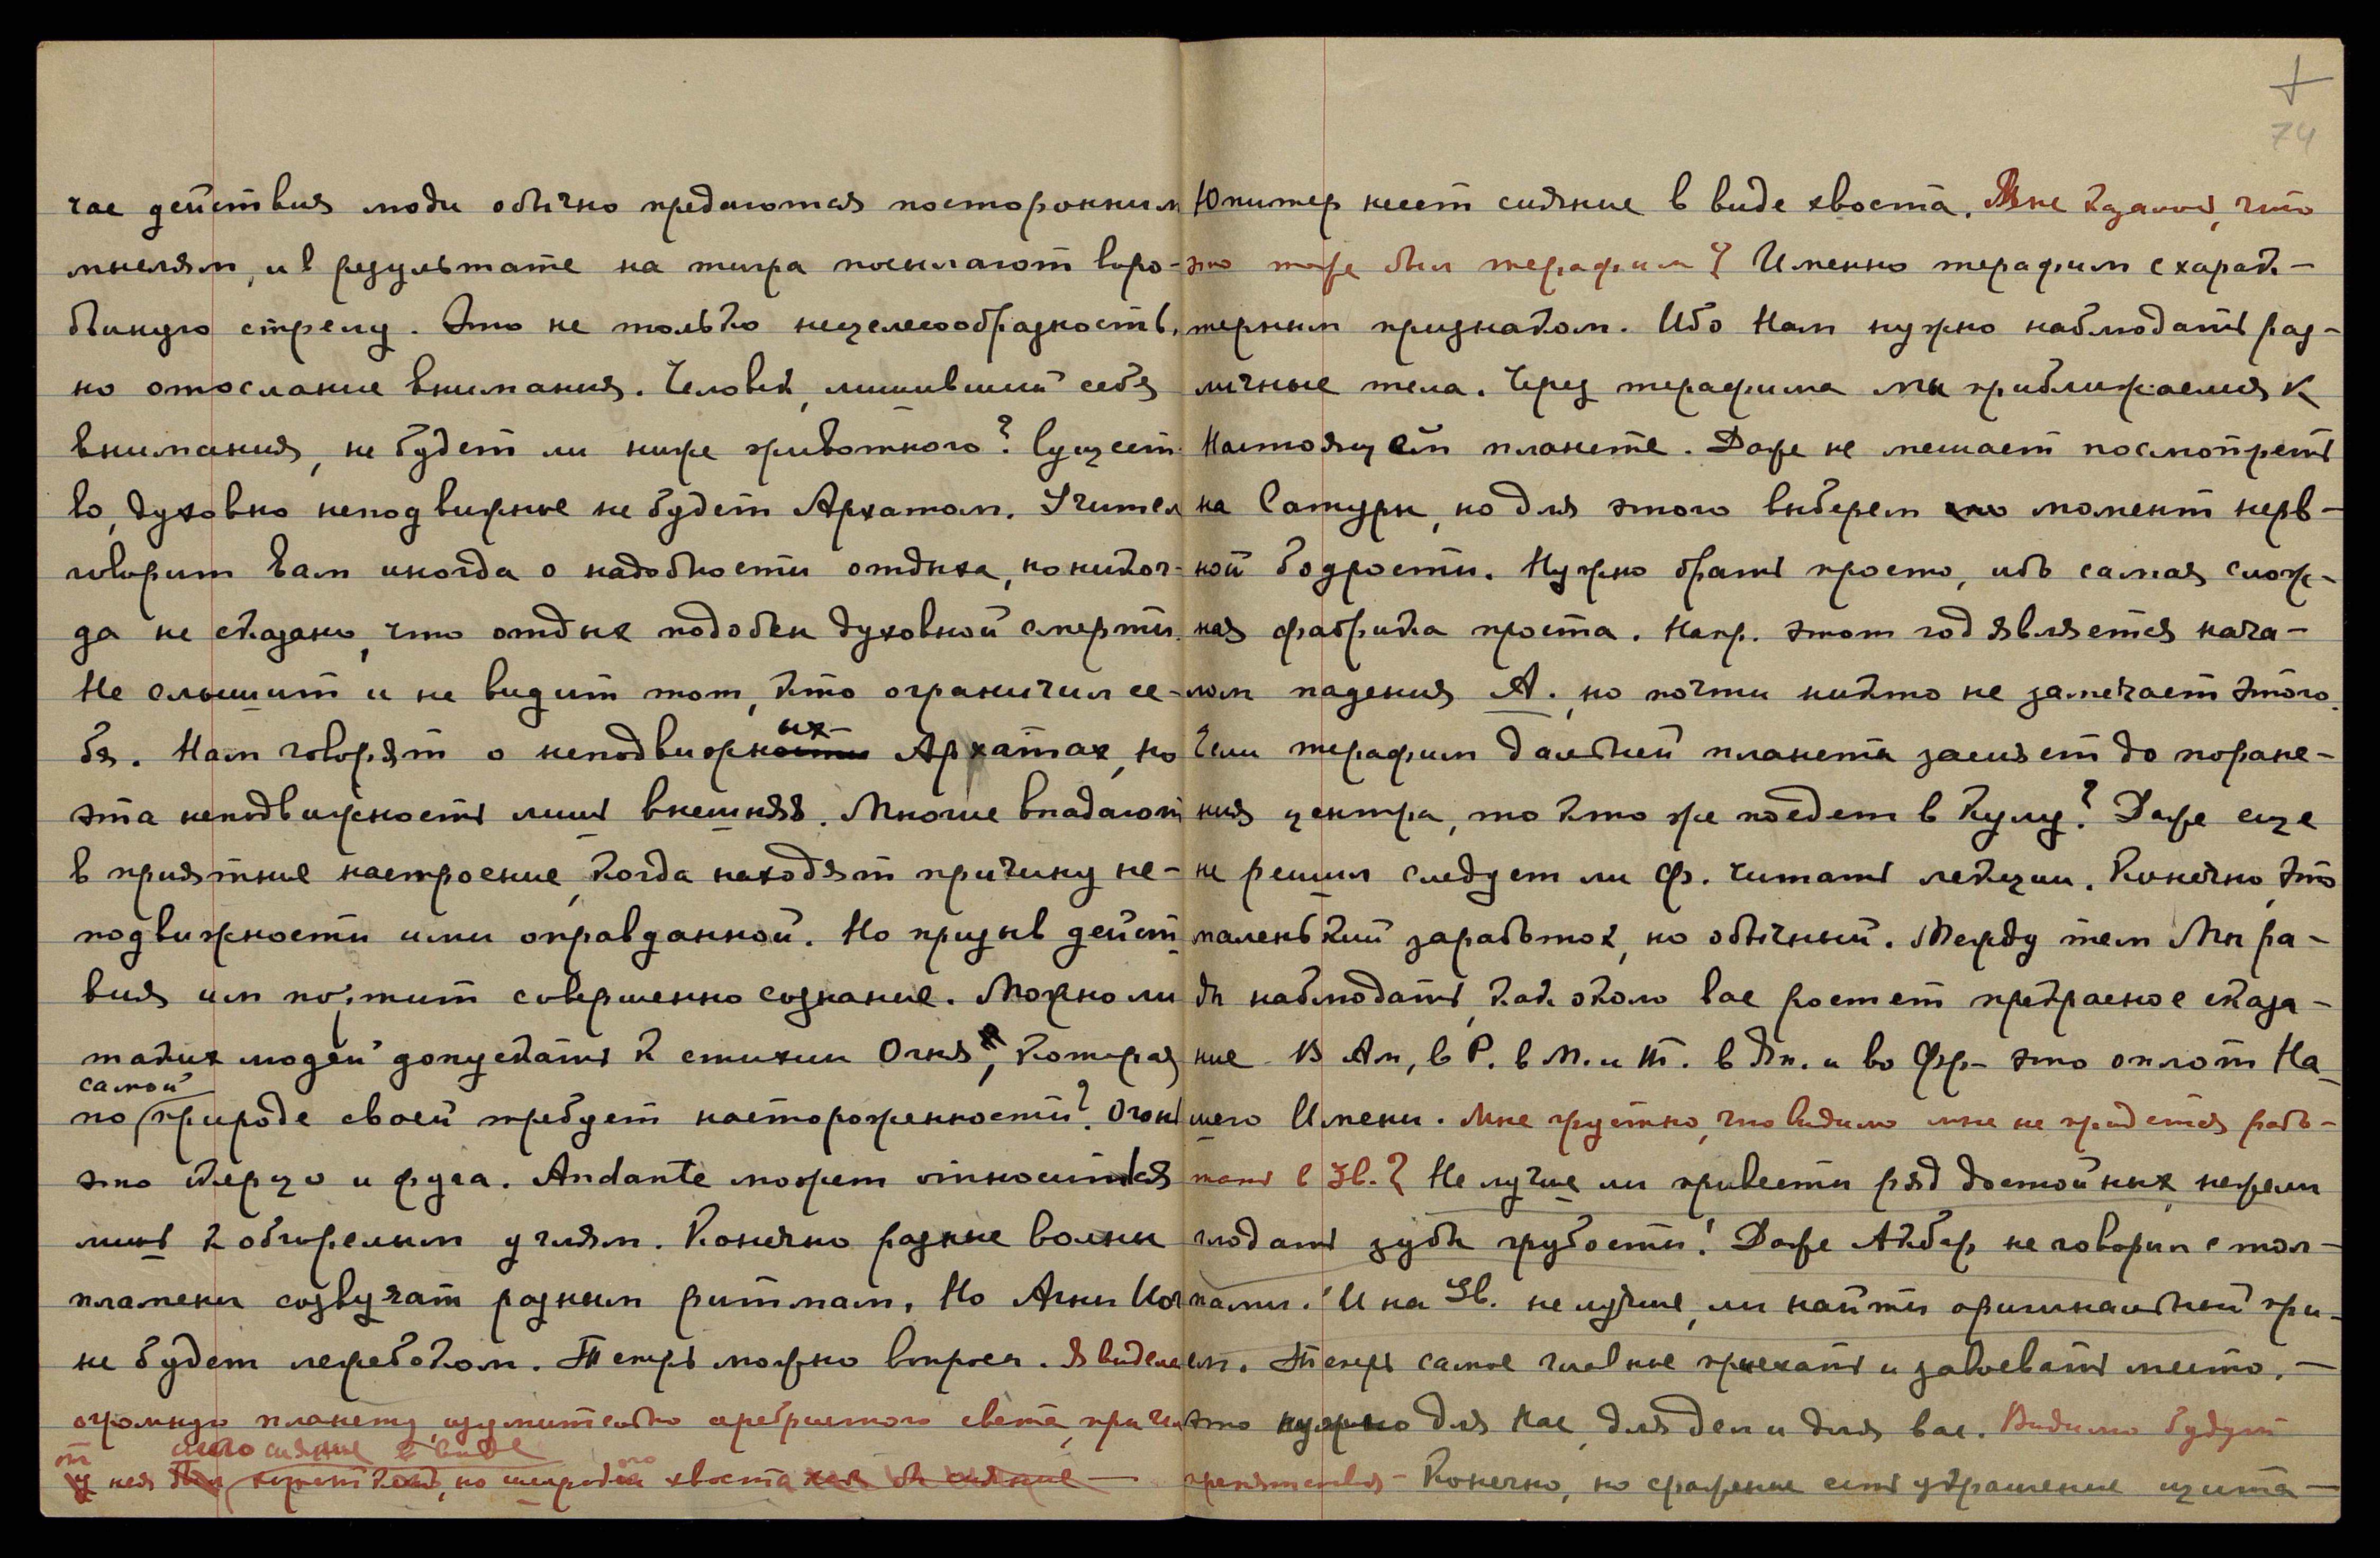 час действия люди обычно предаются посторонним
мыслям, и в результате на тигра посылают воро-
бьиную стрелу. Это не только нецелесообразность,
но отослание внимания. Человек, лишивший себя
внимания, не будет ли ниже животного? Сущест-
во, духовно неподвижное не будет Архатом. Учитель
говорит вам иногда о надобности отдыха, но никог-
да не сказано, что отдых подобен духовной смерти.
Не слышит и не видит тот, кто ограничил се-
бя. Нам говорят о неподвижных Архатах, но
эта неподвижность лишь внешняя. Многие впадают
в приятное настроение, когда находят причину не-
подвижности ими оправданной. Но призыв дейст
вия им помутит совершенно сознание. Можно ли
таких людей допускать к стихии Огня, которая
самой
по природе своей требует настороженности? Огонь
это скерцо и фуга. Andante может относиться
лишь к обгорелым углям. Конечно разные волны
пламени созвучат разным ритмам. Но Агни Йог
не будет лежебоком. Теперь можно вопросы. Я видела
огромную планету, изумительно серебристого света, при чем
от нея
Юпитер несет сияние в виде хвоста. Мне казалось, что
это тоже был терафим? Именно терафим с харак-
терным признаком. Ибо Нам нужно наблюдать раз-
личные тела. Через терафима мы приближаемся к
настоящей планете. Даже не мешает посмотреть
на Сатурн, но для этого выберем момент нерв-
ной бодрости. Нужно брать просто, ибо самая слож-
ная фабрика проста. Напр. этот год является нача-
лом падения А., но почти никто не замечает этого.
Если терафим дальней планеты засияет до поране-
ния центра, то кто же поедет в Кулу? Даже еще
не решил следует ли Ф. читать лекции. Конечно, это
маленький заработок, но обычный. Между тем Мы ра-
ды наблюдать, как около вас ростет прекрасное сказа-
ние В Ам, в Р. в М. и Т. в Яп. и во Фр- это оплот На-
шего Имени. Мне грустно, что видимо мне не придется рабо-
тать в Зв.? Не лучше ли привести ряд достойных нежели
глодать зубы грубости! Даже Акбар не говорил с тол-
пами. И на Зв. не лучше, ли найти оригинальный при-
ем. Теперь самое главное приехать и завоевать место. —
это нужно для Нас, для дела и для вас. Видимо будут
препятствия - Конечно, но сражение есть украшение щита —
+
74